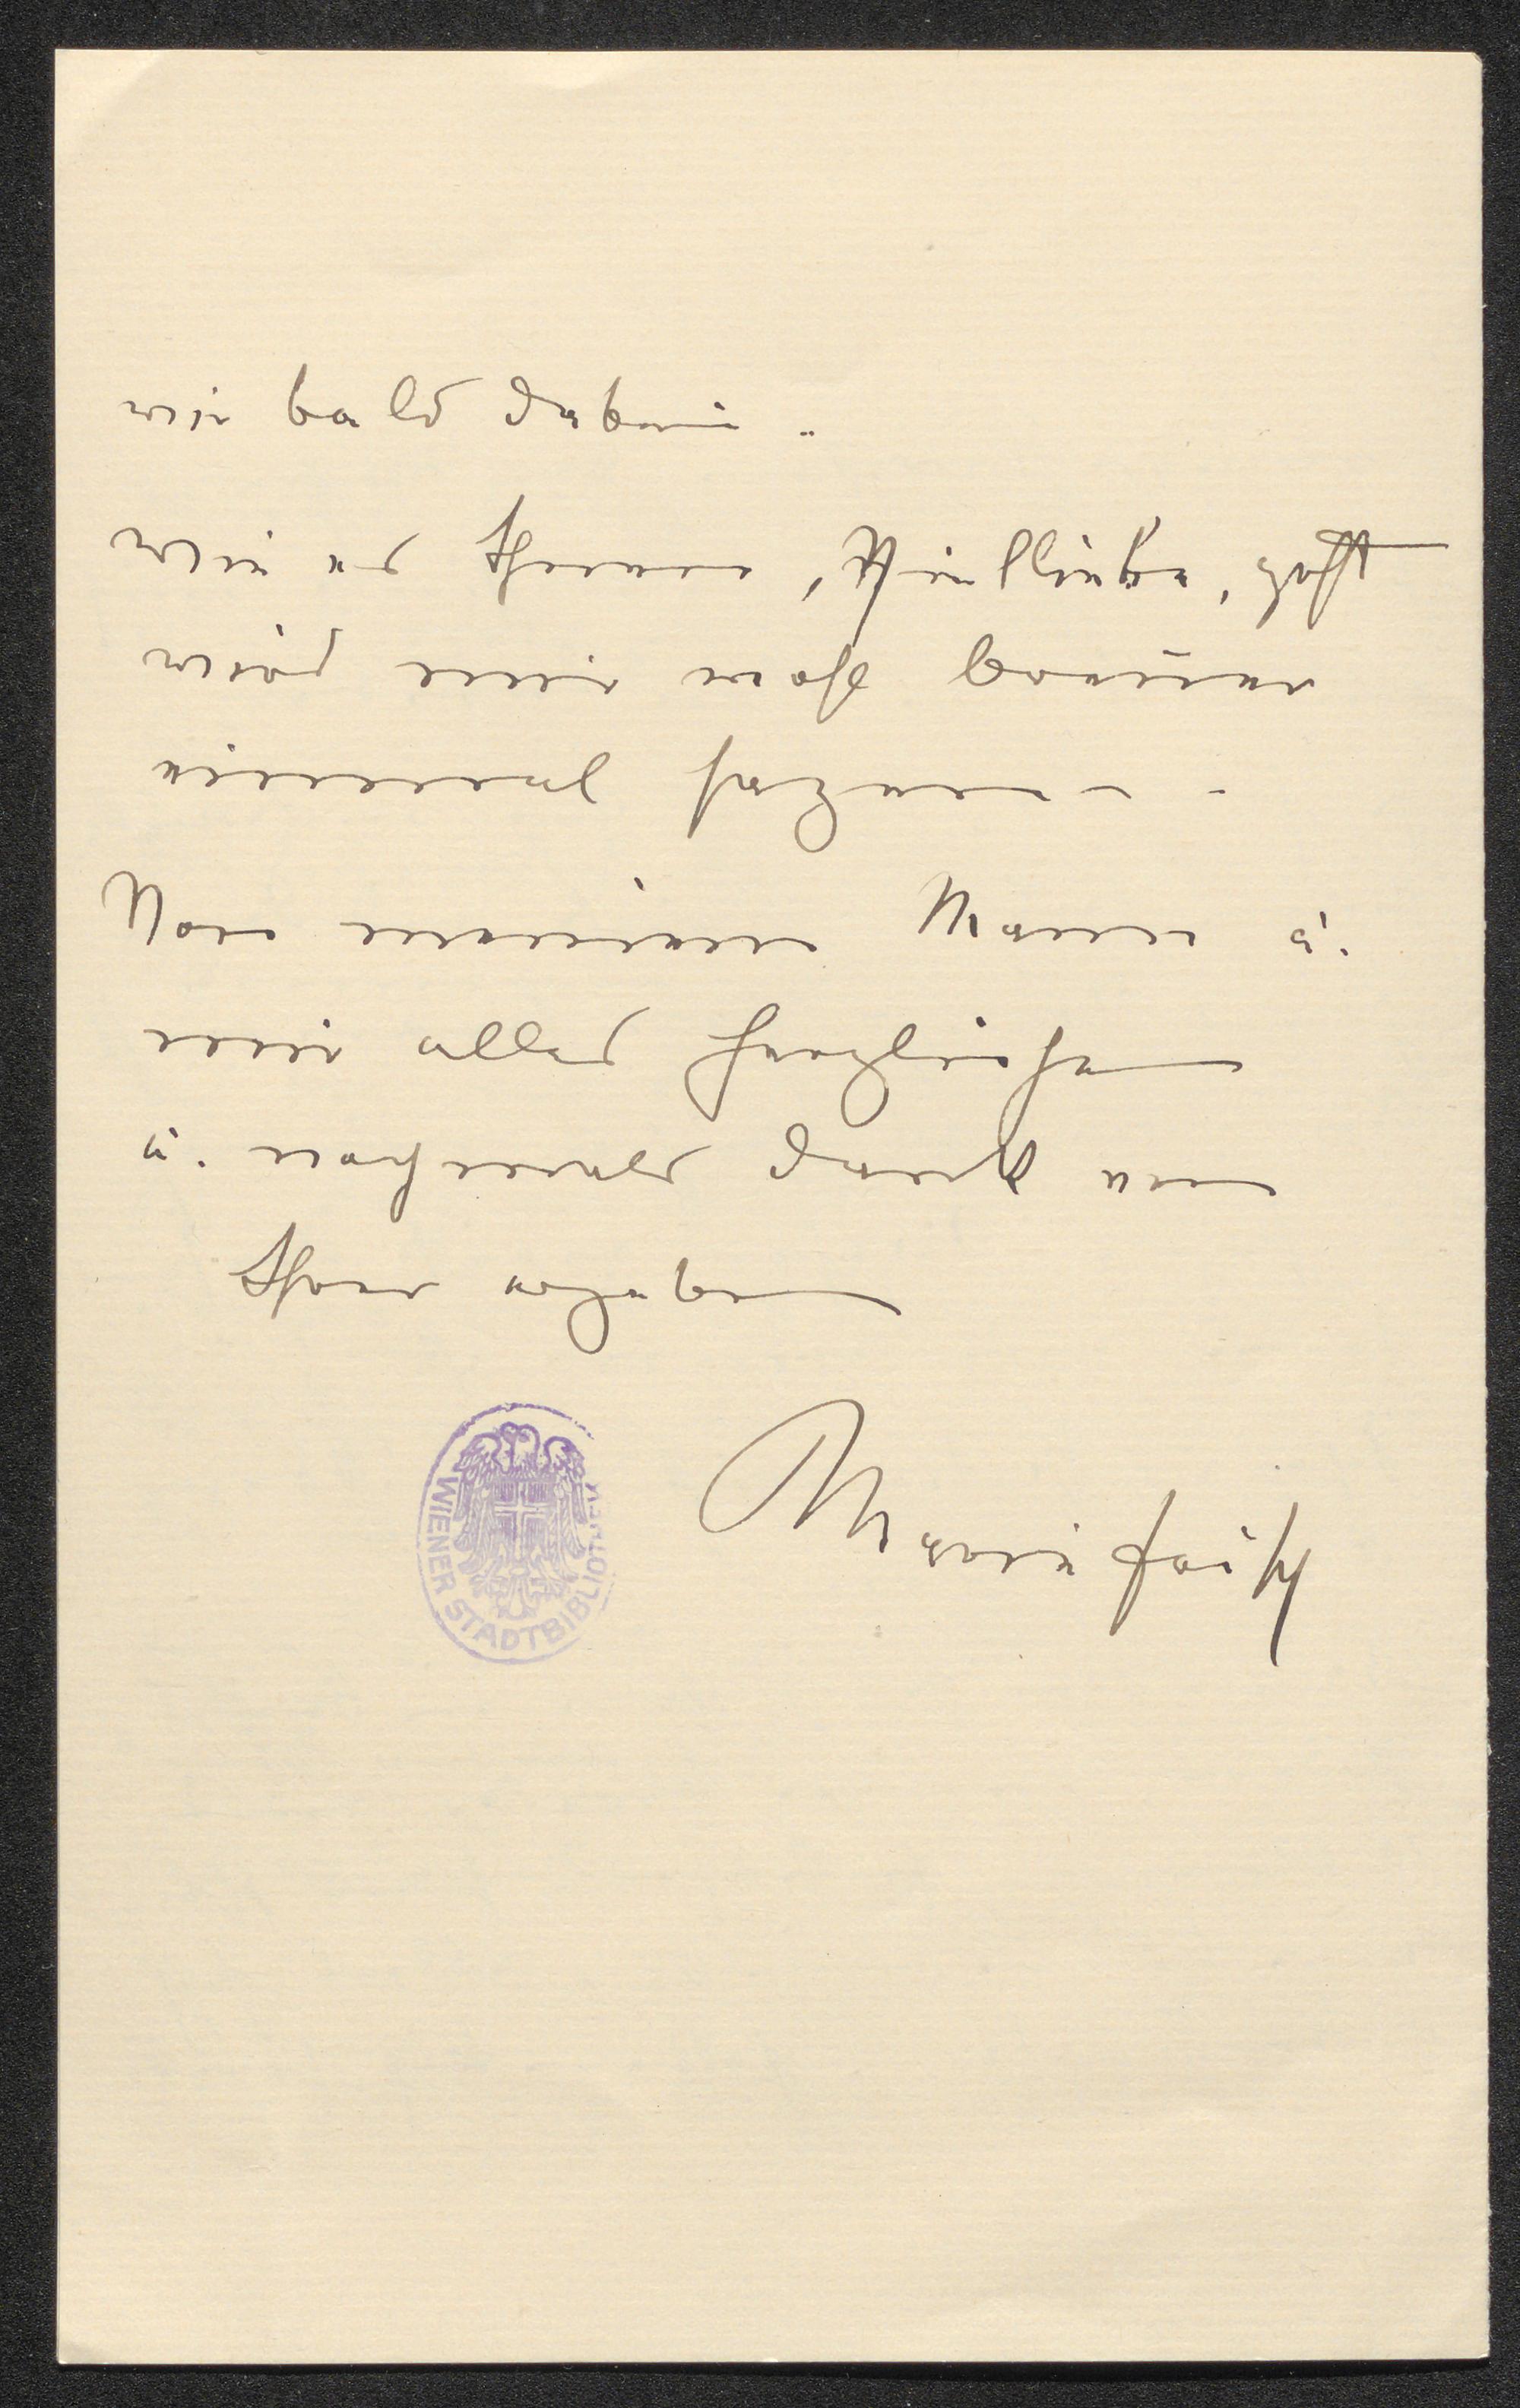 wir bald dabei.
wie es Ihnen, Vielliebe, geht
wird mir wohl Breuer
einmal sagen.
Von meinem Mann u.
mir alles Herzliche
u. nochmals Dank von
Ihrer ergebenen
Marie Frisch
WIENER STADTBIBLIOTHEK